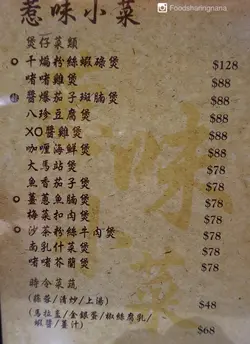 Foodsharingnana
惹味小菜
煲仔菜類
干煸粉絲蝦碌煲 $128
啫啫雞煲 $88
醬爆茄子斑腩煲 $88
八珍豆腐煲 $88
XO醬雞煲 $88
咖喱海鮮煲 $88
大馬站煲 $78
魚香茄子煲 $78
薑蔥魚腩煲 $78
梅菜扣肉煲 $78
沙茶粉絲牛肉煲 $78
南乳什菜煲 $78
啫啫芥蘭煲 $78
時令菜蔬
(蒜蓉/清炒/上湯) $48
(馬拉盞/金銀蛋/椒絲腐乳/
蝦醬/薑汁) $68